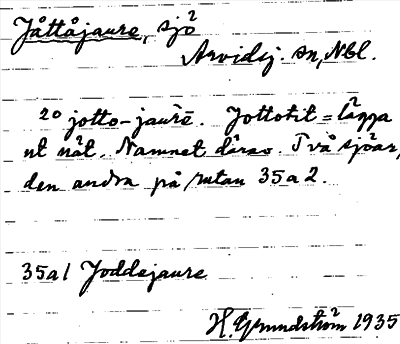 Jåttåjaure, sjö
Arvidsj. sn, Nbl.
20 jotto-jaurē. Jottotit = lägga
ut nät. Namnet därav. Två sjöar,
den andra på rutan 35a2.
35a1 Joddejaure
H. Grundström 1935